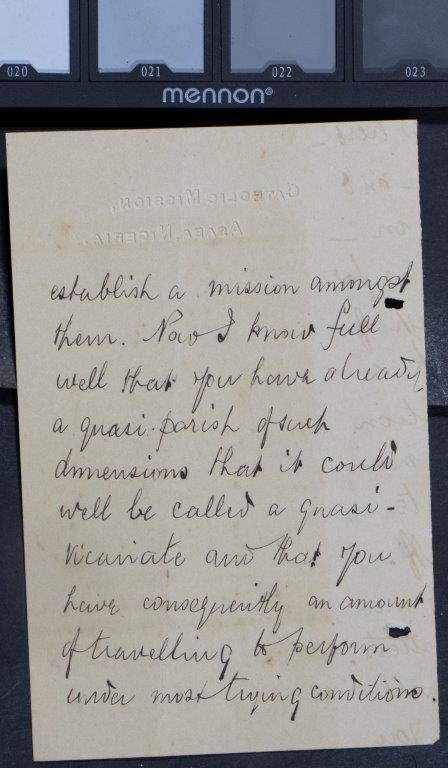 020 021 022 023
mennon®
CATHOLIC MISSION,
ASABA, NIGERIA.
establish a mission amongst
them. Now I know full
well that you have already
a quasi-parish of such
dimensions that it could
well be called a quasi-
vicariate and that you
have consequently an amount
of travelling to perform
under most trying conditions.